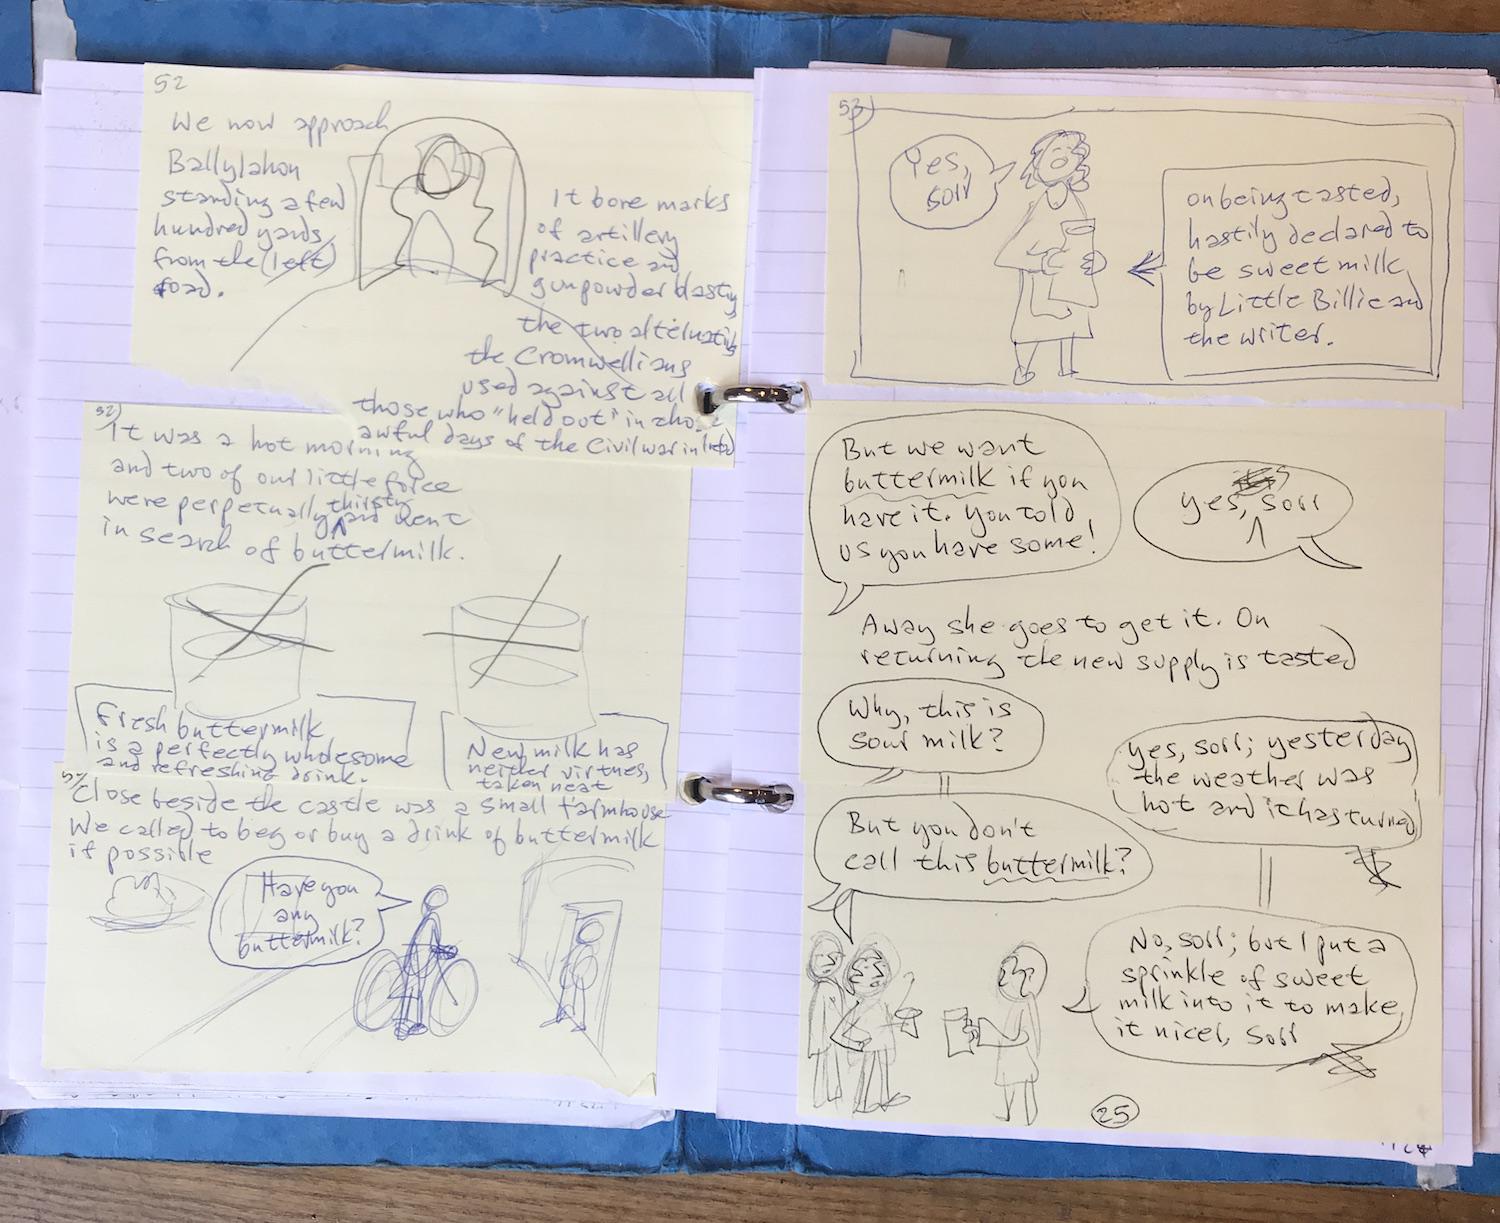 52
We now approach
Ballylahon
standing a few
hundred yards
from the (left)
road.
It bore marks
of artillery
practice and
gunpowder blasting
the two alternatives
the Cromwellians
used against all
those who "held out" in those
awful days of the Civil war in
52)
It was a hot morning
and two of our little force
were perpetually thirsty and went
in search of buttermilk.
Fresh buttermilk
is a perfectly wholesome
and refreshing drink.
New milk has
neither virtues,
taken neat
52)
Close beside the castle was a small farmhouse
We called to beg or buy a drink of buttermilk
if possible
Have you
any
buttermilk?
53)
Yes,
sorr
on being tasted,
hastily declared to
be sweet milk
by Little Billie and
the writer.
But we want
buttermilk if you
have it. You told
us you have some!
yes, sorr
Away she goes to get it. On
returning the new supply is tasted
Why, this is
sour milk?
Yes, sorr; yesterday
the weather was
hot and it has turned
But you don't
call this buttermilk?
No, sorr; but I put a
sprinkle of sweet
milk into it to make
it nicer, sorr
25